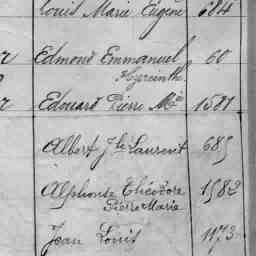 Louis Marie Eugène 684
Edmond Emmanuel 60
Hyacinthe
Edouard Pierre Mie 1581
Albert Jh Laurent 685
Alphonse Théodore 1582
Pierre Marie
Jean Louis 1173